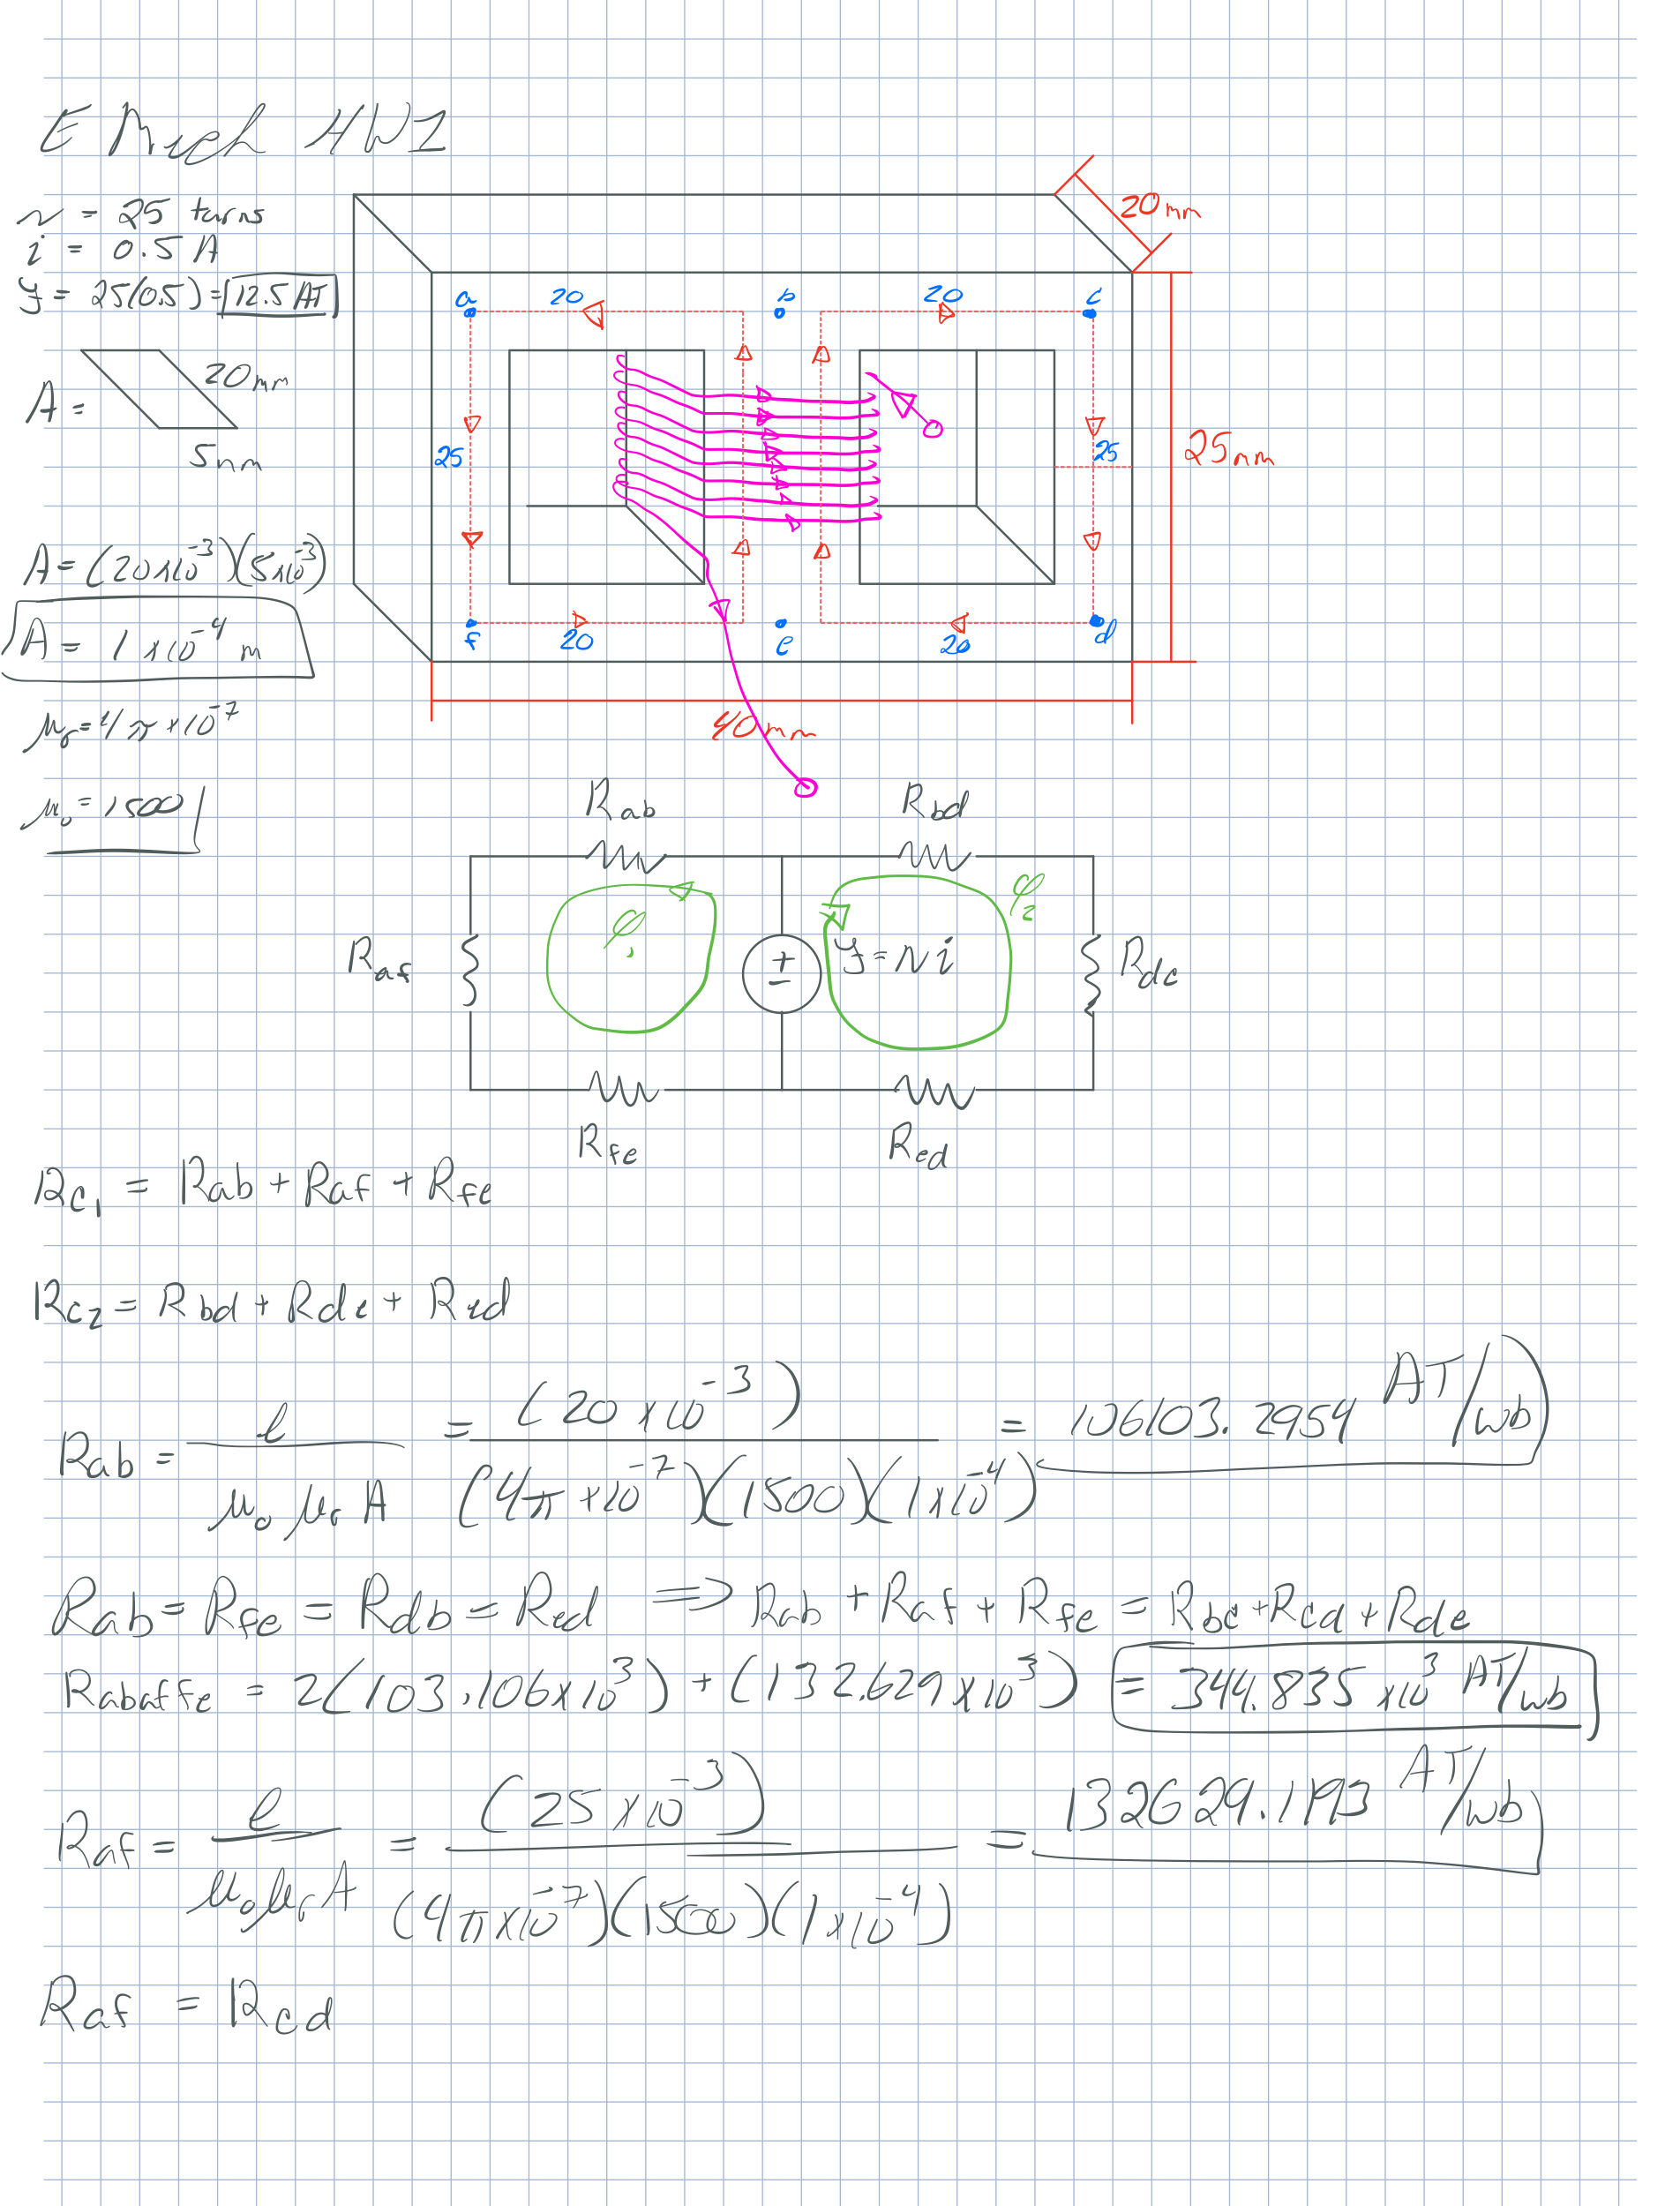 E Mech HW1
N = 25 turns
i = 0.5 A
ℱ = 25(0.5) = 12.5 AT
20mm
A =
5mm
A = (20x10⁻³)(5x10⁻³)
A = 1 x10⁻⁴ m
μr = 4π x10⁻⁷
μ₀ = 1500
20mm
a 20 b 20 c
25 25
25mm
f 20 e 20 d
40mm
Rab Rbd
Raf φ₁ ± ℱ = Ni φ₂ Rdc
Rfe Red
Rc₁ = Rab + Raf + Rfe
Rc₂ = Rbd + Rde + Red
Rab = l / μ₀ μr A = (20 x10⁻³) / (4π x10⁻⁷)(1500)(1x10⁻⁴) = 106103.2954 AT/wb
Rab = Rfe = Rdb = Red ⟹ Rab + Raf + Rfe = Rbc + Rcd + Rde
Rabaffe = 2(103.106x10³) + (132.629x10³) = 344.835 x10³ AT/wb
Raf = l / μ₀μrA = (25 x10⁻³) / (4πx10⁻⁷)(1500)(1x10⁻⁴) = 132629.1193 AT/wb
Raf = Rcd